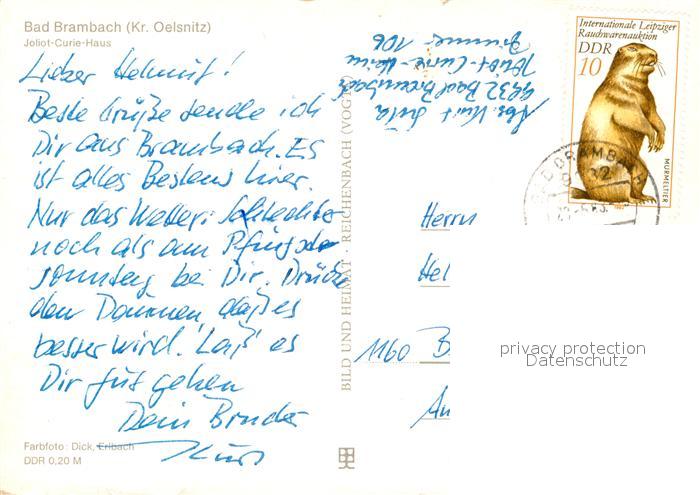 Bad Brambach (Kr. Oelsnitz)
Joliot-Curie-Haus
Lieber Helmut!
Beste Grüße sende ich
Dir aus Brambach. Es
ist alles Bestens hier.
Nur das Wetter: Schlechter
noch als am Pfingst
sonntag bei Dir. Drück
den Daumen, daß es
besser wird. Laß' es
Dir gut gehen
Dein Bruder
Kurt
Farbfoto: Dick, Erlbach
DDR 0,20 M
BILD UND HEIMAT · REICHENBACH (VOGTL
Abs. Kurt
9932 Bad Brambach
Joliot-Curie-Heim
Zimmer 106
Internationale Leipziger
Rauchwarenauktion
DDR
10
MURMELTIER
BAD BRAMBACH
9932
Herrn
Hel
1160 B
An
privacy protection
Datenschutz